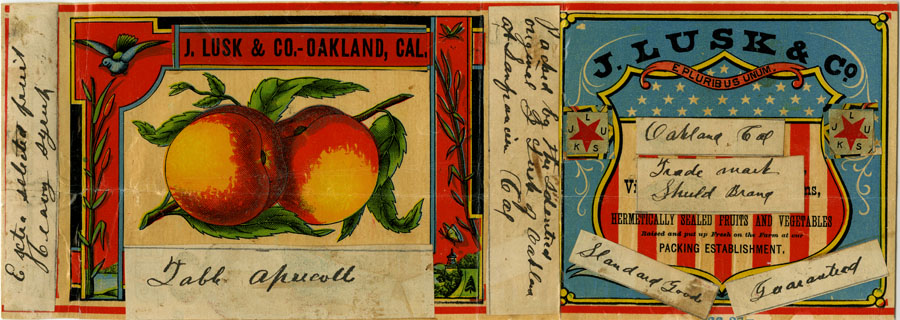 Extra selected fruit
Heavy syrup
J. LUSK & CO.-OAKLAND, CAL.
Table Apricots
Packed by the
original J. Lusk of Oakland
at San Francisco Cal
J. LUSK & CO
E PLURIBUS UNUM.
L
U
S
K
J
L
U
S
K
J
Oakland Cal
Trade mark
Shield Brand
HERMETICALLY SEALED FRUITS AND VEGETABLES
Raised and put up Fresh on the Farm at our
PACKING ESTABLISHMENT.
Standard Goods
Guaranteed